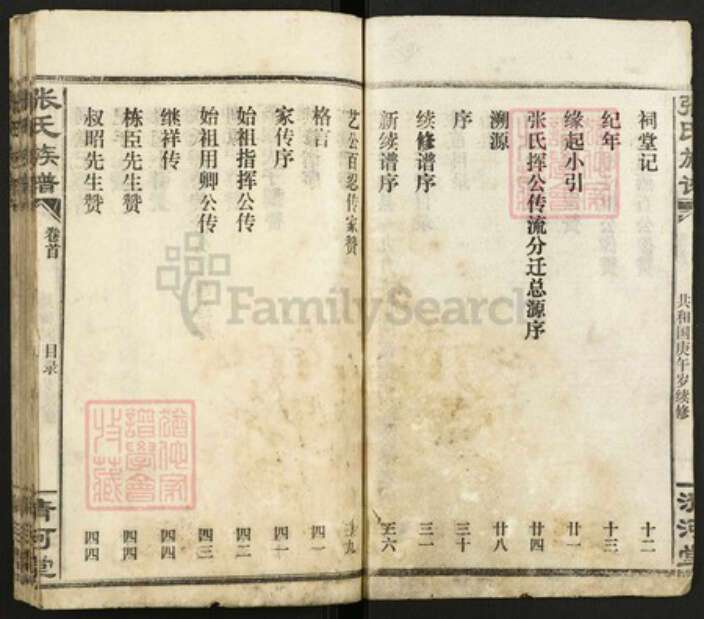 祠堂记 十二
纪年 十三
缘起小引 廿一
张氏挥公传流分迁总源序 廿四
溯源 廿八
序 三十
续修谱序 三一
新续谱序 三六
艺公百忍传家赞 三九
格言 四一
家传序 四一
始祖指挥公传 四二
始祖用卿公传 四三
继祥传 四四
栋臣先生赞 四四
叔昭先生赞 四四
张氏族谱
共和国庚午岁续修
清河堂
张氏族谱
卷首
目录
清河堂
FamilySearch
犹他家谱学会特藏